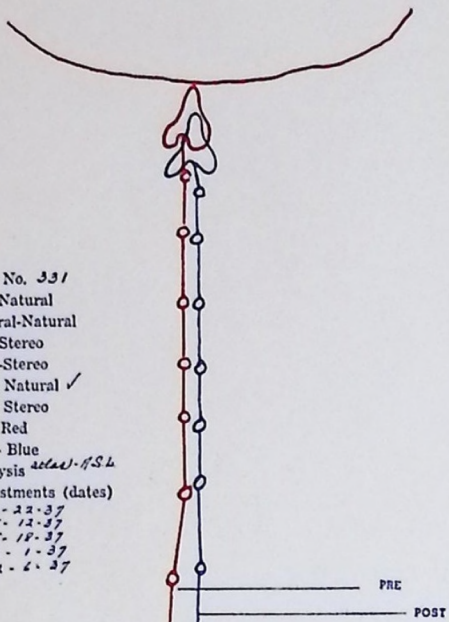 No. 331
Natural
ral-Natural
Stereo
-Stereo
Natural ✓
Stereo
Red
Blue
ysis atlas - A.S.L
stments (dates)
- 22-37
- 12-37
- 18-37
- 1-37
- 6-37
PRE
POST